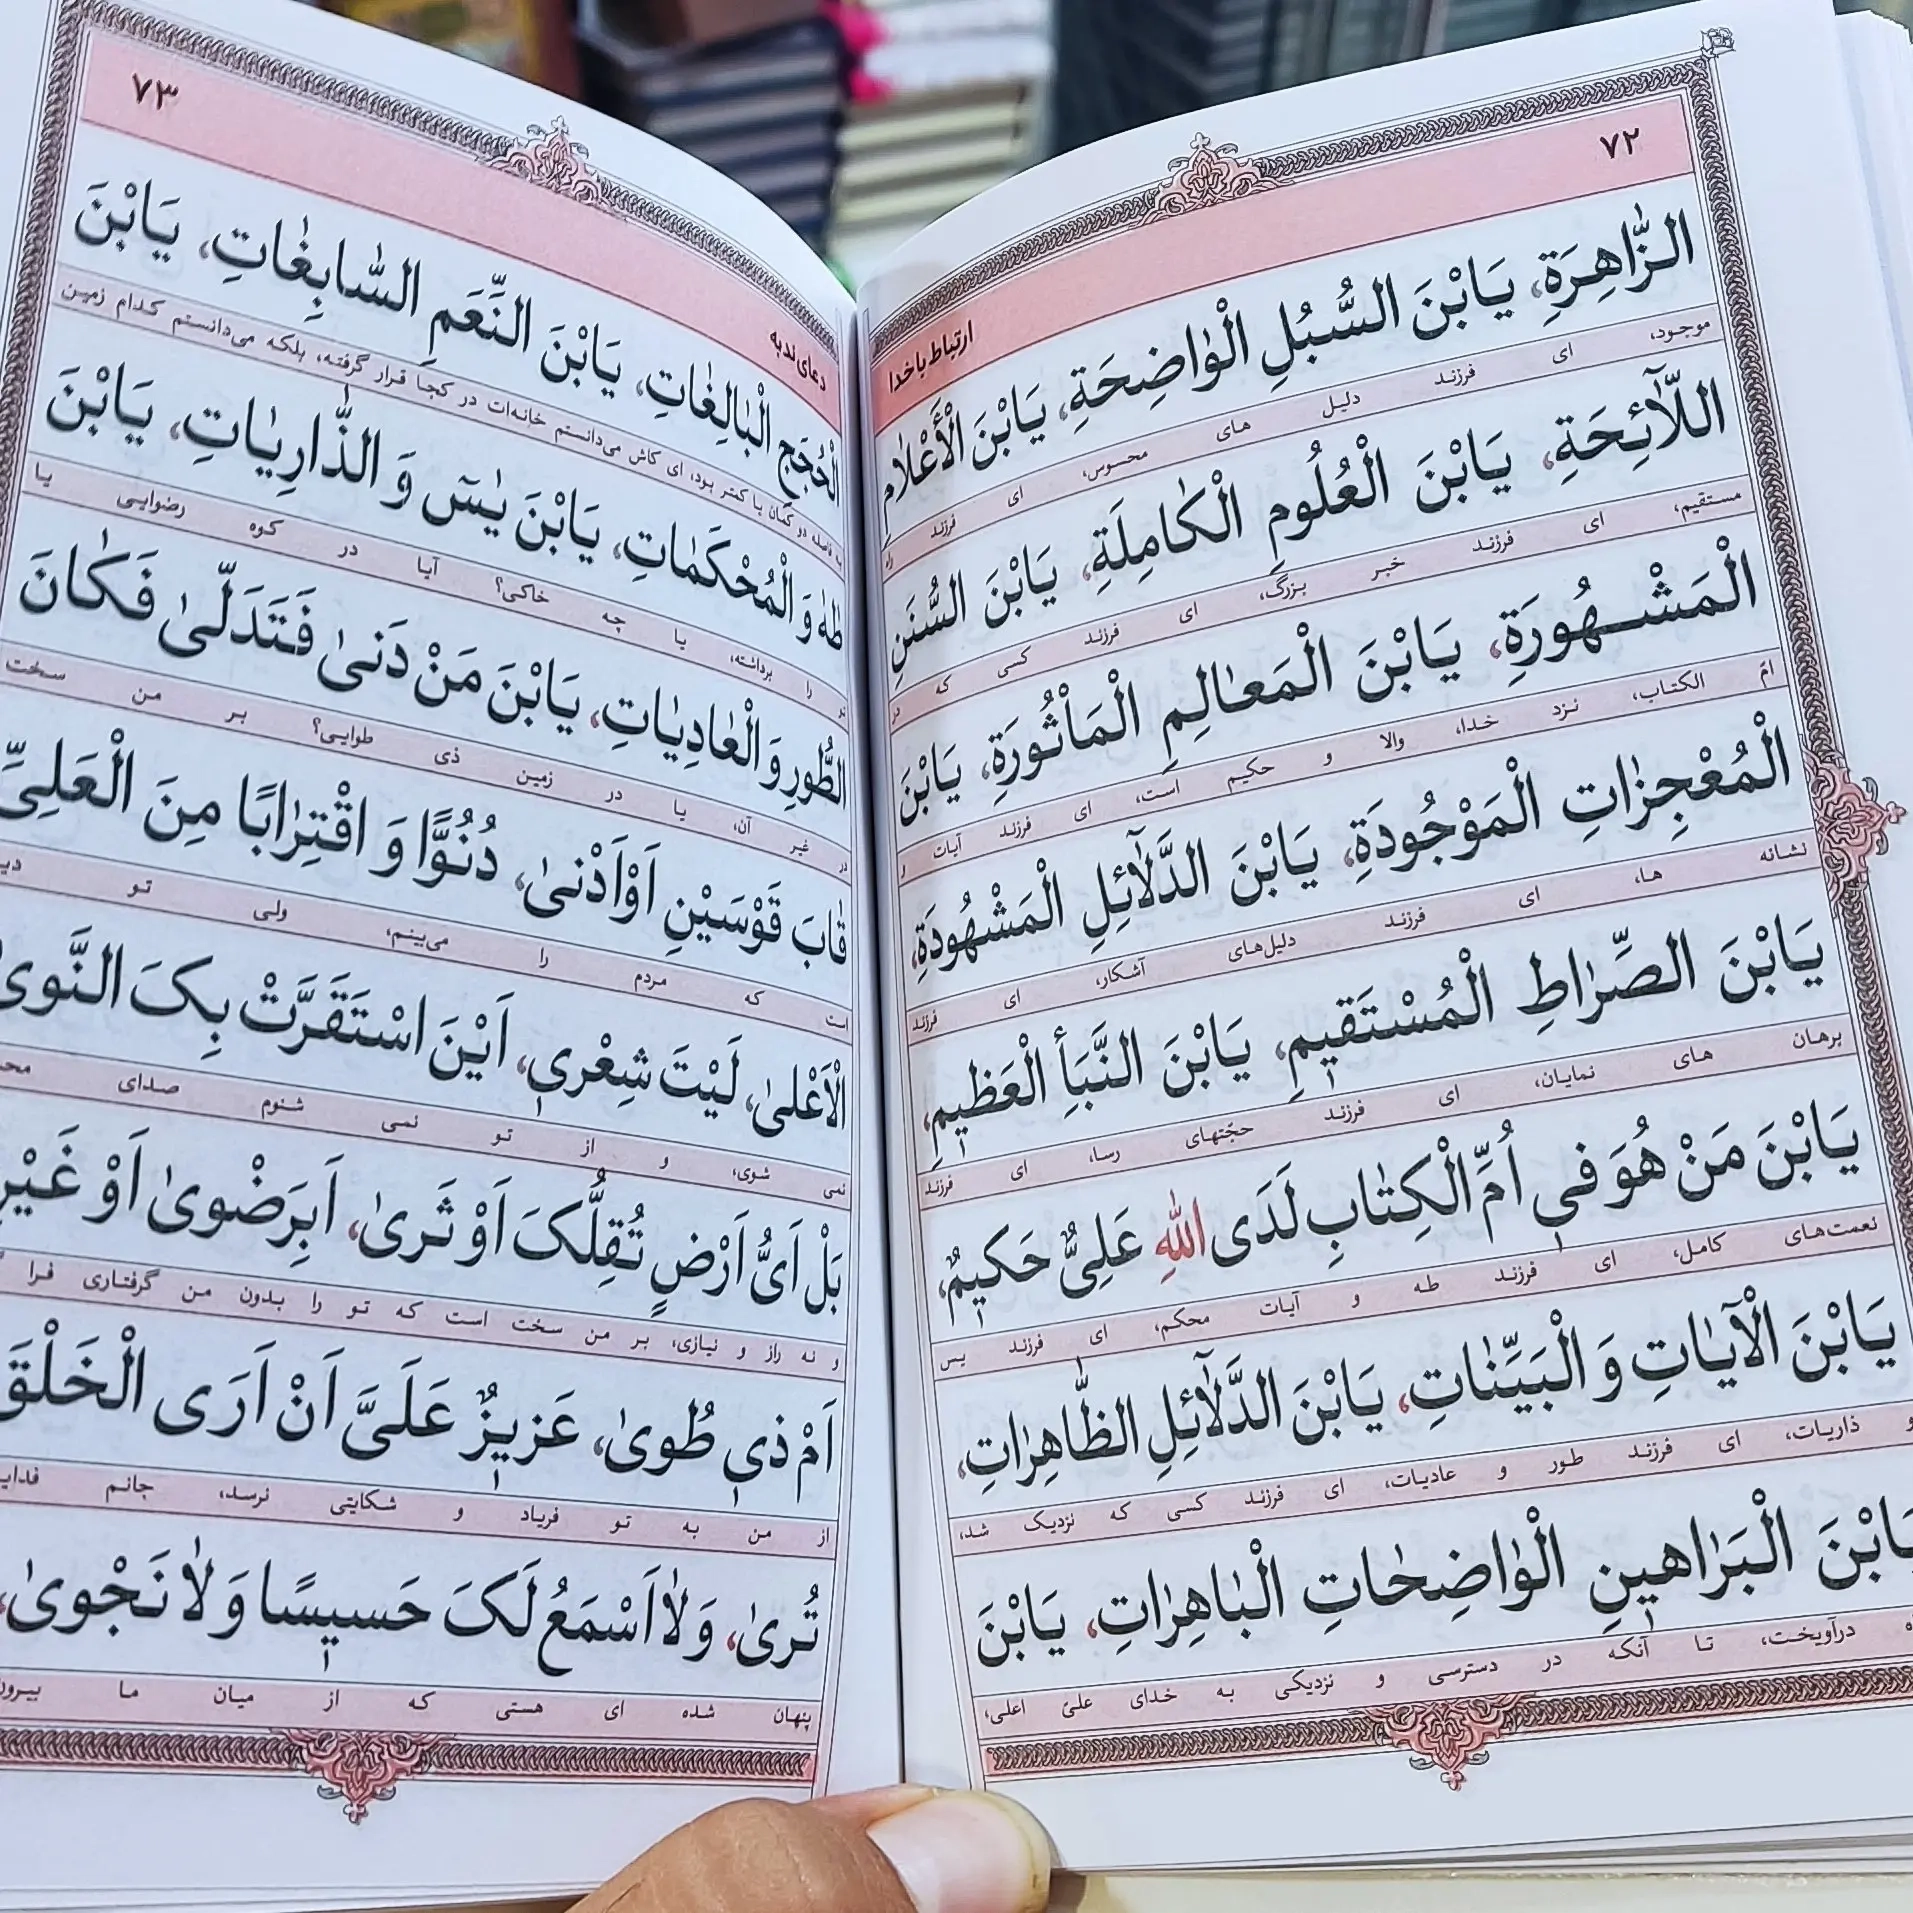 ۷۲
ارتباط با خدا
الزّٰاهِرَةِ، يَابْنَ السُّبُلِ الْوٰاضِحَةِ، يَابْنَ الْأَعْلٰامِ
موجود، ای فرزند دلیل های محسوس، ای فرزند راه
اللّٰآئِحَةِ، يَابْنَ الْعُلُومِ الْكٰامِلَةِ، يَابْنَ السُّنَنِ
مستقیم، ای فرزند خبر بزرگ، ای فرزند کسی که در
الْمَشْهُورَةِ، يَابْنَ الْمَعٰالِمِ الْمَأْثُورَةِ، يَابْنَ
امّ الکتاب، نزد خدا، والا و حکیم است، ای فرزند آیات و
الْمُعْجِزٰاتِ الْمَوْجُودَةِ، يَابْنَ الدَّلٰآئِلِ الْمَشْهُودَةِ،
نشانه ها، ای فرزند دلیل‌های آشکار، ای فرزند
يَابْنَ الصِّرٰاطِ الْمُسْتَقيمِ، يَابْنَ النَّبَأِ الْعَظيمِ،
برهان های نمایان، ای فرزند حجّتهای رسا، ای فرزند
يَابْنَ مَنْ هُوَ في اُمِّ الْكِتٰابِ لَدَى اللّٰهِ عَلِيٌّ حَكيمٌ،
نعمت‌های کامل، ای فرزند طه و آیات محکم، ای فرزند یس
يَابْنَ الْآيٰاتِ وَ الْبَيِّنٰاتِ، يَابْنَ الدَّلٰآئِلِ الظّٰاهِرٰاتِ،
و ذاریات، ای فرزند طور و عادیات، ای فرزند کسی که نزدیک شد،
يَابْنَ الْبَرٰاهينِ الْوٰاضِحٰاتِ الْبٰاهِرٰاتِ، يَابْنَ
درآویخت، تا آنکه در دسترسی و نزدیکی به خدای علیّ اعلی،
۷۳
دعای ندبه
الْحُجَجِ الْبٰالِغٰاتِ، يَابْنَ النِّعَمِ السّٰابِغٰاتِ، يَابْنَ
به فاصله دو کمان یا کمتر بود، ای کاش می‌دانستم خانه‌ات در کجا قرار گرفته، بلکه می‌دانستم کدام زمین
طٰهٰ وَ الْمُحْكَمٰاتِ، يَابْنَ يٰسٓ وَ الذّٰارِيٰاتِ، يَابْنَ
تو را برداشته، یا چه خاکی؟ آیا در کوه رضوایی یا
الطُّورِ وَ الْعٰادِيٰاتِ، يَابْنَ مَنْ دَنىٰ فَتَدَلّىٰ فَكٰانَ
در غیر آن، یا در زمین ذی طوایی؟ بر من سخت
قٰابَ قَوْسَيْنِ اَوْ اَدْنىٰ، دُنُوًّا وَ اقْتِرٰابًا مِنَ الْعَلِيِّ
است که مردم را می‌بینم، ولی تو
الْاَعْلىٰ، لَيْتَ شِعْري، اَيْنَ اسْتَقَرَّتْ بِكَ النَّوىٰ
نمی شوی، و از تو نمی شنوم صدای
بَلْ اَيُّ اَرْضٍ تُقِلُّكَ اَوْ ثَرىٰ، اَبِرَضْوىٰ اَوْ غَيْرِ
و نه راز و نیازی، بر من سخت است که تو را بدون من گرفتاری فرا
اَمْ ذي طُوىٰ، عَزيزٌ عَلَيَّ اَنْ اَرَى الْخَلْقَ
از من به تو فریاد و شکایتی نرسد، جانم
تُرىٰ، وَلٰا اَسْمَعُ لَكَ حَسيسًا وَ لٰا نَجْوىٰ،
پنهان شده ای هستی که از میان ما بیرون